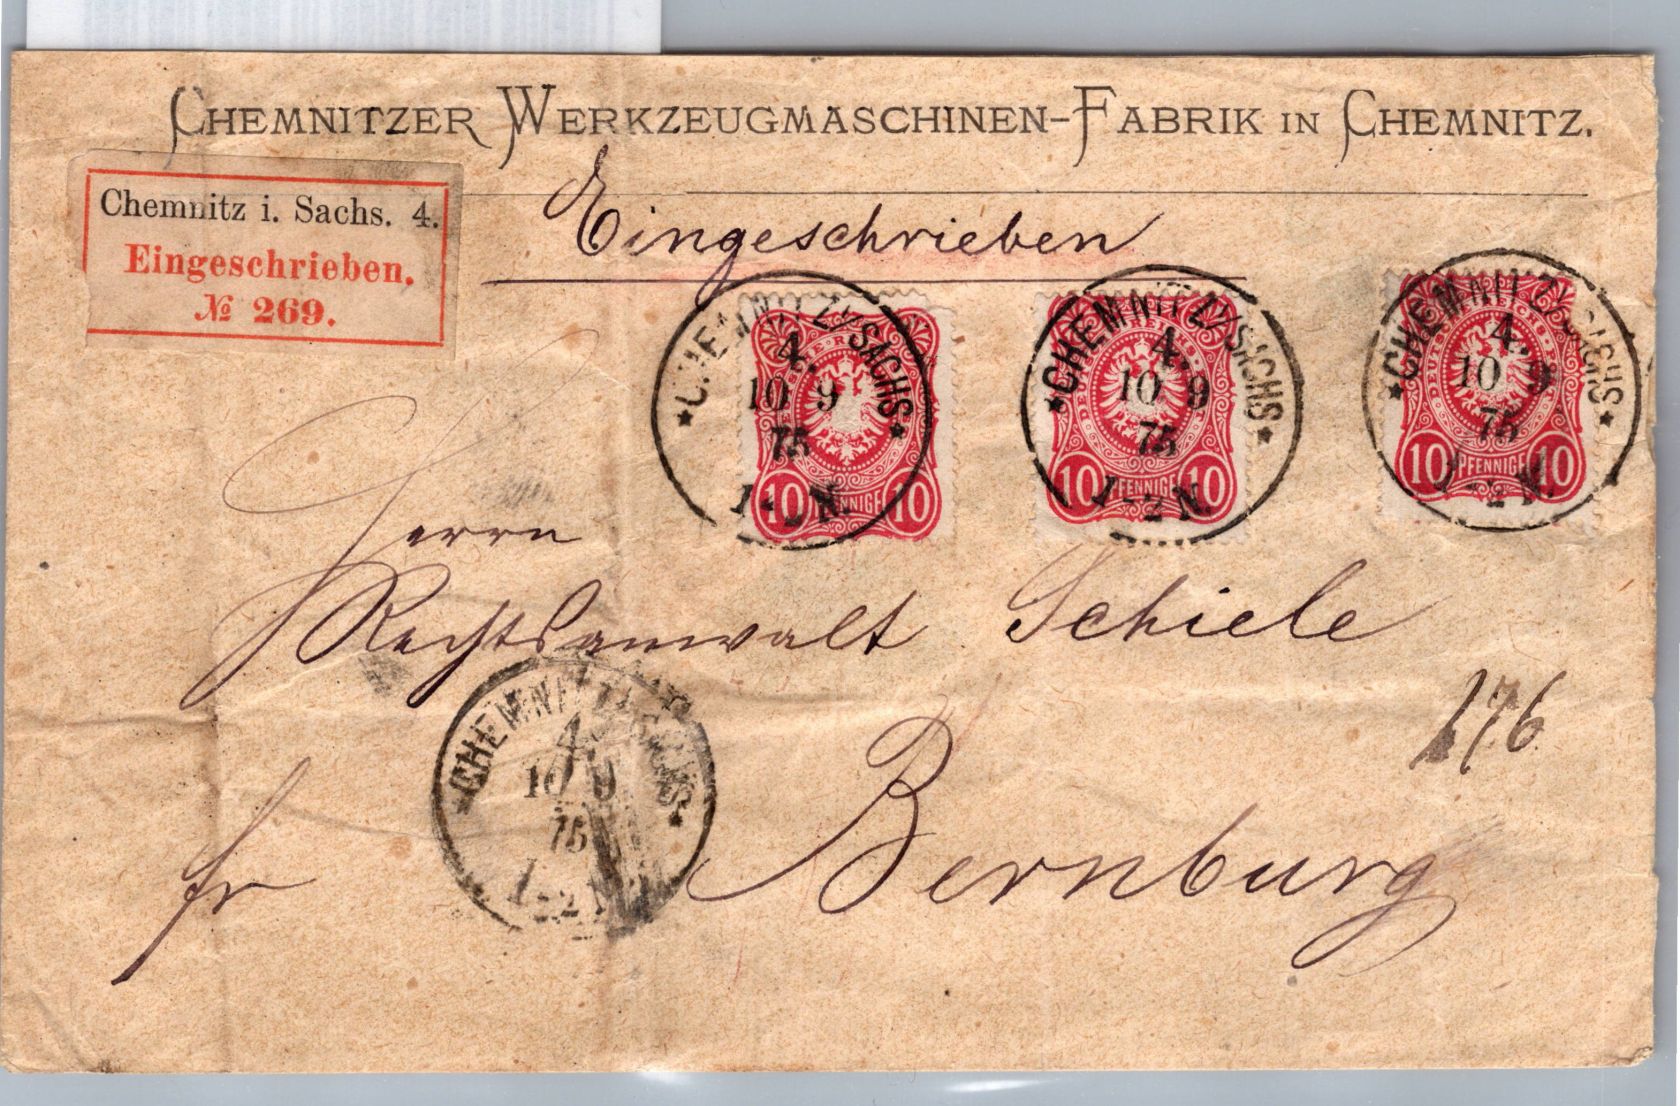 CHEMNITZER WERKZEUGMASCHINEN-FABRIK IN CHEMNITZ.
Chemnitz i. Sachs. 4.
Eingeschrieben.
№ 269.
Eingeschrieben
CHEMNITZ/SACHS
4.
10 9
75
1-2 N.
10 PFENNIGE 10
CHEMNITZ/SACHS
4.
10 9
75
1-2 N.
DEUTSCHE REICHS
10 PFENNIGE 10
CHEMNITZ/SACHS
4.
10 9
75
1-2 N.
DEUTSCHE REICHS
10 PFENNIGE 10
Herrn
Rechtsanwalt Schiele
276
CHEMNITZ/SACHS
4.
10 9
75
1-2 N
fr Bernburg